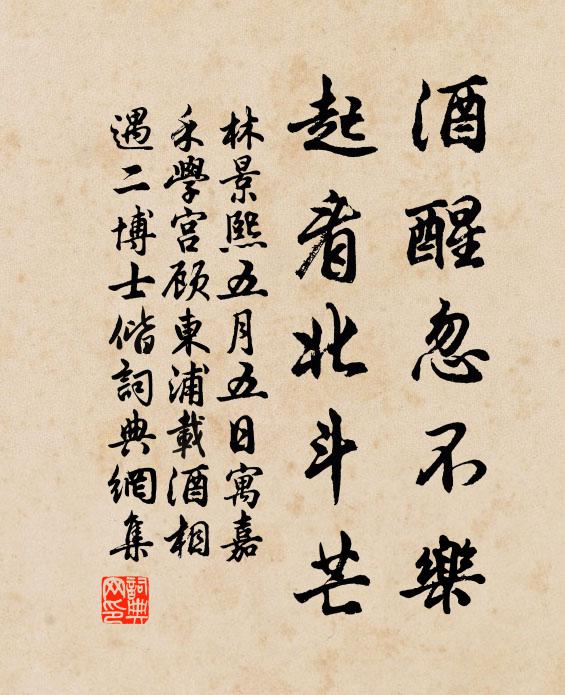 酒醒忽不樂
起看北斗芒
林景熙五月五日寓嘉
禾學宮顾東浦載酒相
遇二博士偕詞典網集
詞典網印